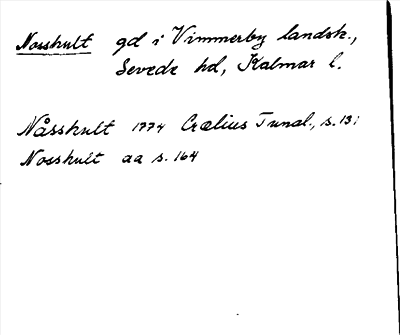 Nosshult gd i Vimmerby landsk.,
Sevede hd, Kalmar l.
Nåsshult 1774 Crælius Tunal., s. 131
Nosshult aa s. 164